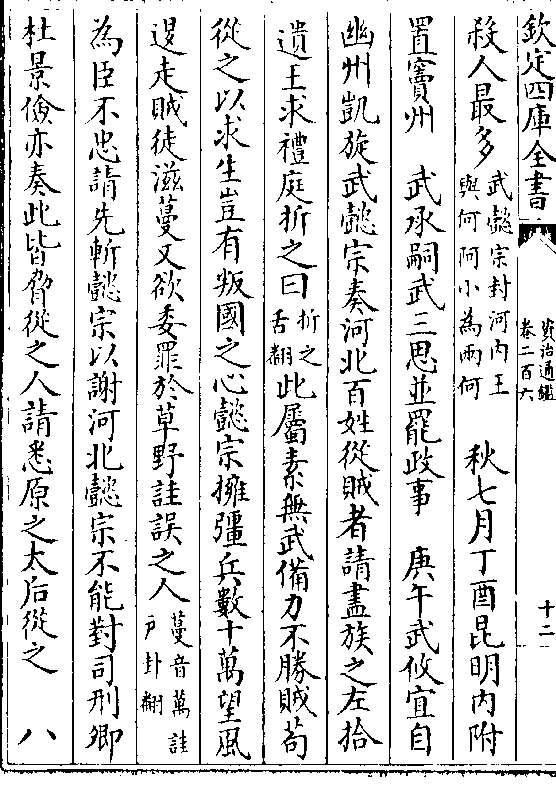 欽定四庫全書
資治通鑑
卷二百六
十二
殺人最多武懿宗封河内王與何阿小為兩何 秋七月丁酉昆明内附
置竇州 武承嗣武三思並罷政事 庚午武攸宜自
幽州凱旋武懿宗奏河北百姓從賊者請盡族之左拾
遺王求禮庭折之曰折之舌翻此屬素無武備力不勝賊苟
從之以求生豈有叛國之心懿宗擁彊兵數十萬望風
退走賊徒滋蔓又欲委罪於草野詿誤之人蔓音萬詿戶卦翻
為臣不忠請先斬懿宗以謝河北懿宗不能對司刑卿
杜景儉亦奏此皆脅從之人請悉原之太后從之 八